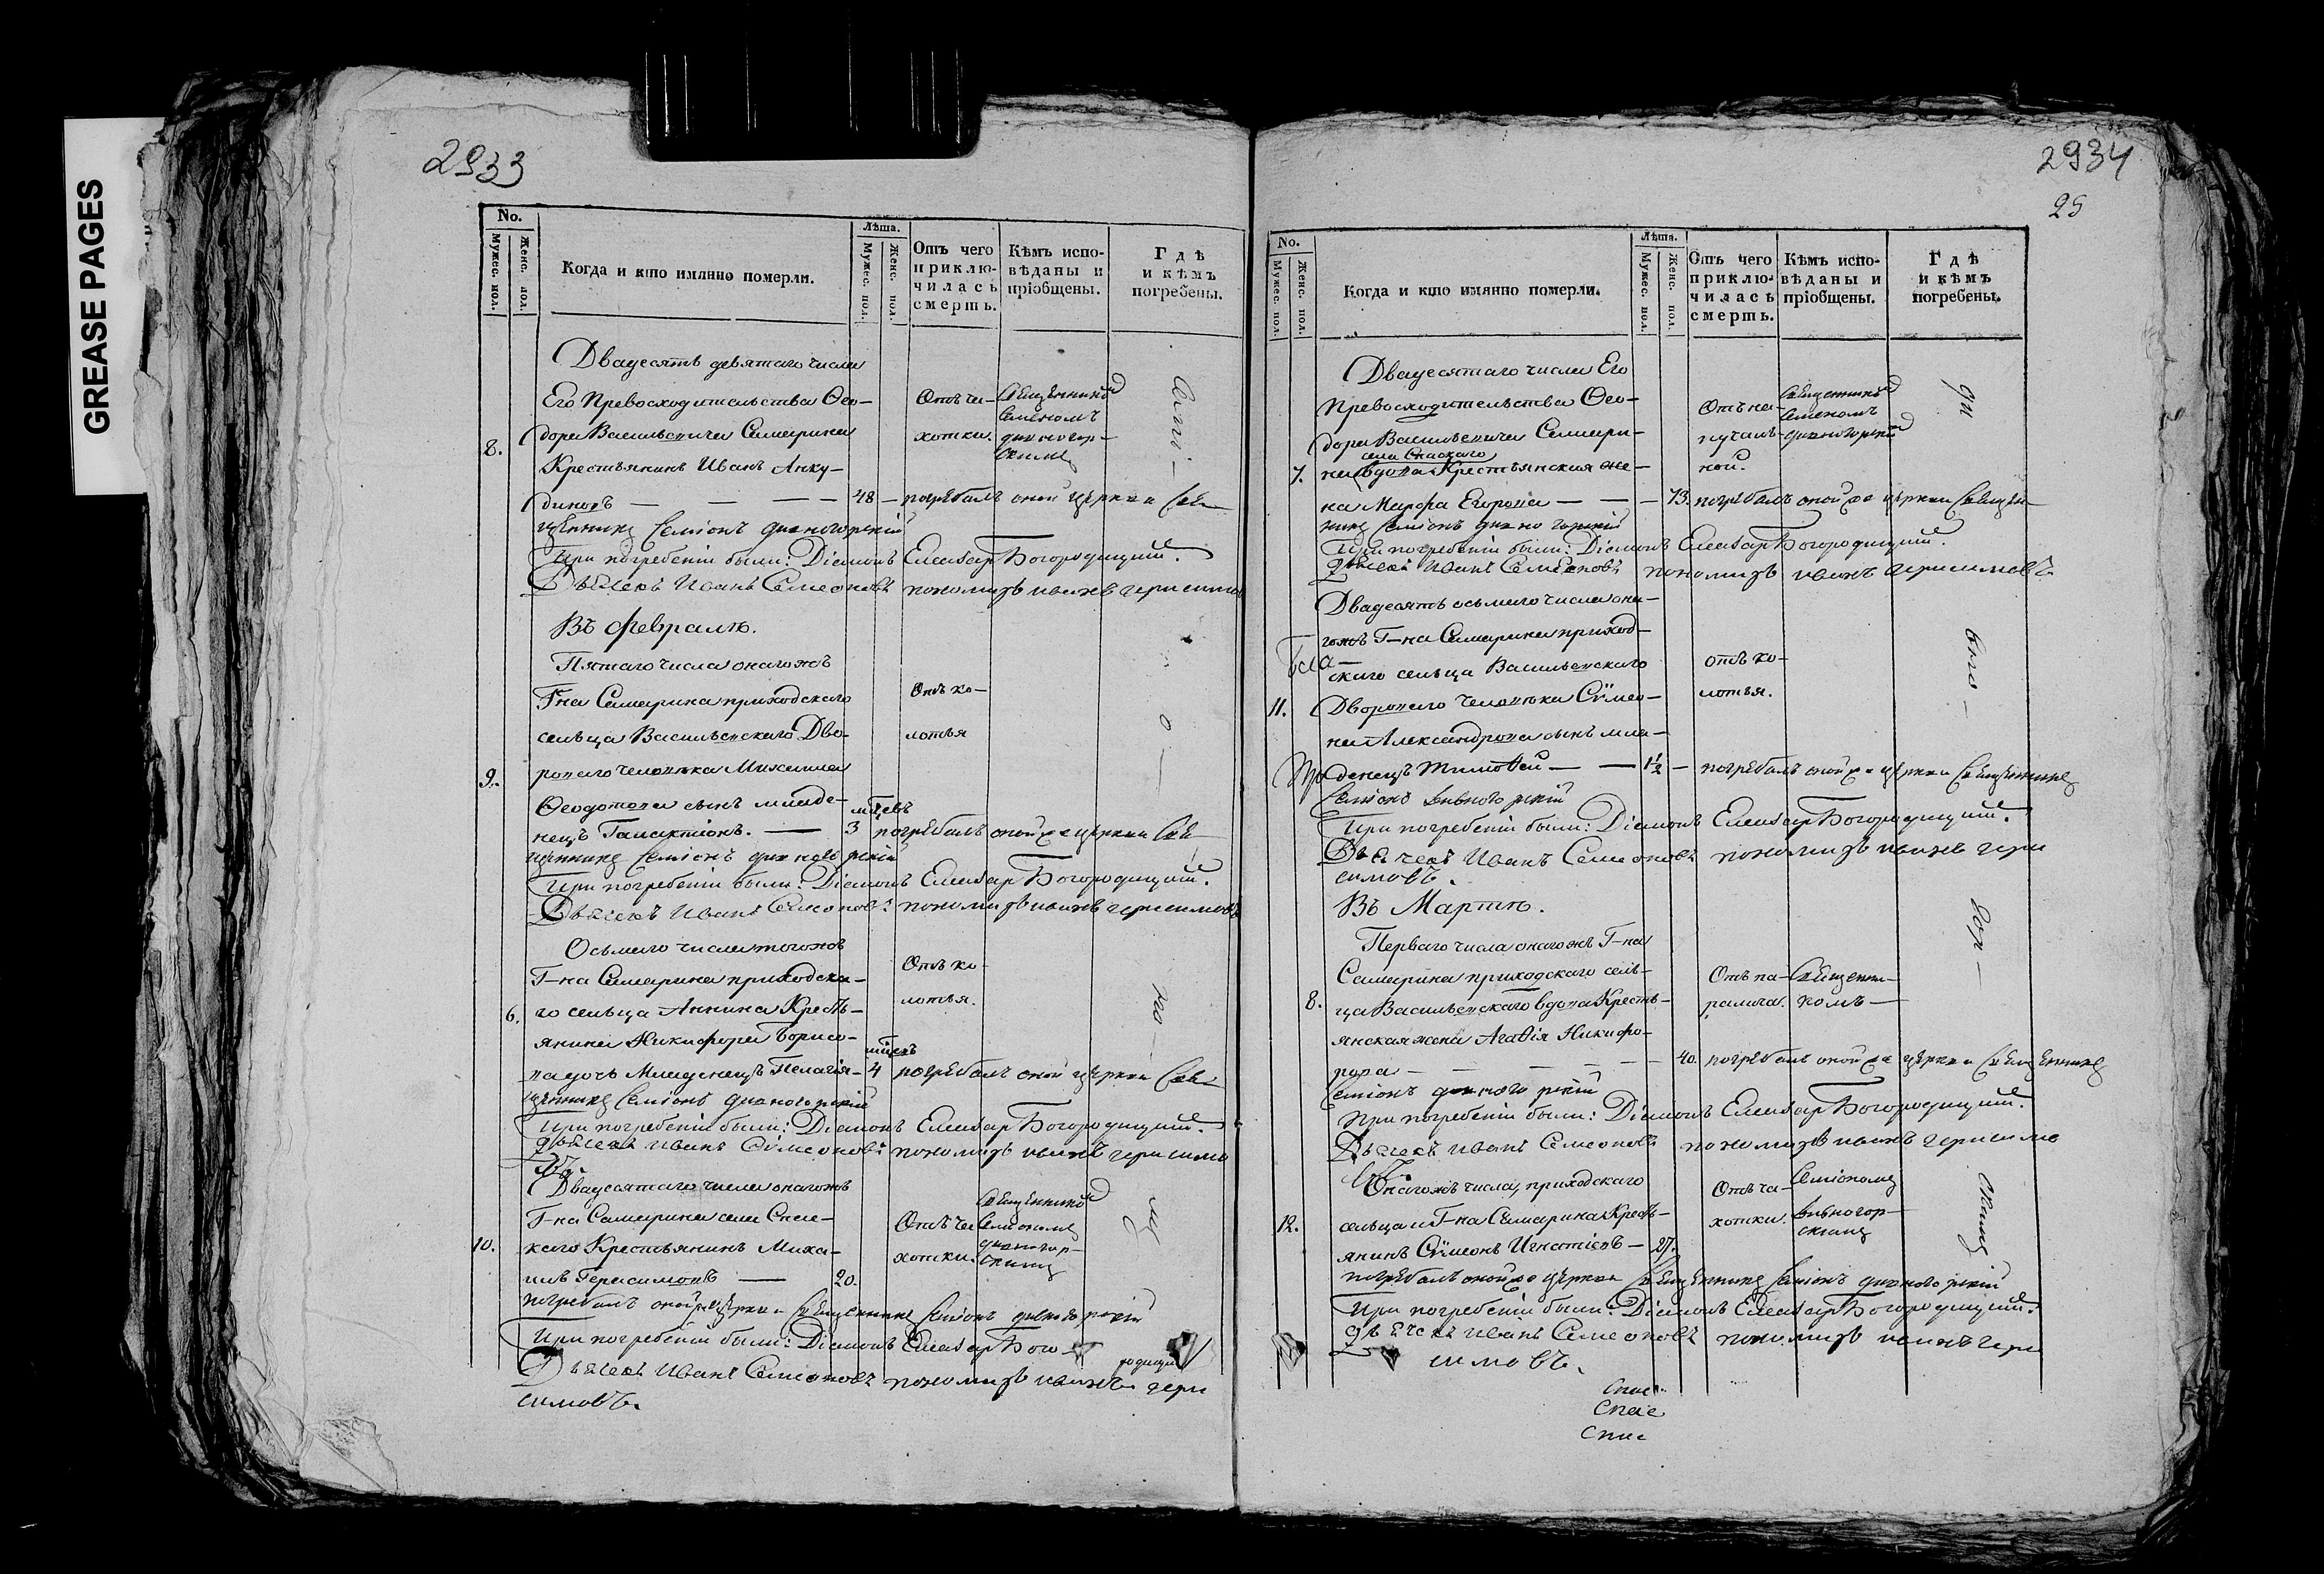 GREASE PAGES
2933
No.
Мужес. пол.
Женс. пол.
Когда и кто имянно померли.
Лѣта.
Мужес. пол.
Женс. пол.
Отъ чего приключилась смерть.
Кѣмъ исповѣданы и пріобщены.
Гдѣ и кѣмъ погребены.
Двадесять девятаго числа
Его Превосходительства Ѳео-
дора Васильевича Самарина
8.
Крестьянинъ Иванъ Анку-
диновъ — — — — 48 — погребалъ оной церкви Свя-
Отъ ча-
хотки.
Священникомъ
Семеономъ
дивногор-
скимъ
щенникъ Семіонъ дивногорскій
При погребеніи были: Діаконъ Елеазар Богородицкій.
Дьячекъ Иванъ Семеоновъ пономарь иванъ герасимов
Въ Февралѣ.
Пятаго числа онагожъ
Г-на Самарина приходскаго
сельца Васильевскаго Дво-
9.
роваго человѣка Михаила
Ѳеодотова сынъ младе-
нецъ Галактіонъ. — 3 погребалъ оной же церкви Свя-
мцевъ
Отъ ко-
лотья
щенникъ Семіонъ дивногорскій
При погребеніи были: Діаконъ Елеазар Богородицкій.
Дьячекъ Иванъ Семеоновъ пономарь иванъ герасимовъ
Осьмаго числа тогожъ
Г-на Самарина приходска-
6.
го сельца Аннина Кресть-
янина Никифора Борисо-
ва дочь Младенецъ Пелагія — 4 погребалъ оной церкви Свя-
мцевъ
Отъ ко-
лотья.
щенникъ Семіонъ дивногорскій
При погребеніи были: Діаконъ Елеазар Богородицкій.
дьячекъ иванъ Сѵмеоновъ пономарь иванъ герасимо
въ.
Двадесятаго числа онагожъ
Г-на Самарина села Спас-
10.
каго Крестьянинъ Миха-
илъ Герасимовъ — 20.
Отъ ча
хотки.
Священником
Семіономъ
дивногор-
скимъ
погребалъ оной же церкви Священникъ Семіонъ дивногорскій
При погребеніи были: Діаконъ Елеазар Бого-
родицкій
Дьячекъ Иванъ Семеоновъ пономарь иванъ гера
симовъ.
2934
25
No.
Мужес. пол.
Женс. пол.
Когда и кто имянно померли.
Лѣта.
Мужес. пол.
Женс. пол.
Отъ чего приключилась смерть.
Кѣмъ исповѣданы и пріобщены.
Гдѣ и кѣмъ погребены.
Двадесятаго числа Его
Превосходительства Ѳео-
дора Васильевича Самари-
села Спаскаго
7.
на вдова Крестьянская же-
на Марфа Егорова — — — 73. погребалъ оной же церкви Священ-
Священником
Семеономъ
дивногорским
никъ Семіонъ дивногорскій
При погребеніи были: Діаконъ Елеазар Богородицкій.
дьячекъ иванъ Семеоновъ пономарь иванъ герасимовъ.
Двадесять осьмаго числа она-
гожъ Г-на Самарина приход-
скаго сельца Васильевскаго
11.
Двороваго человѣка Сѵмео-
на Александрова сынъ мла-
денецъ Тимоѳей — — 1½ — погребалъ оной же церкви Священникъ
отъ ко-
лотья.
Семіонъ дивногорскій
При погребеніи были: Діаконъ Елеазар Богородицкій.
Дьячекъ Иванъ Семеоновъ пономарь иванъ гера
симовъ.
Въ Мартѣ.
Перваго числа онагожъ Г-на
Самарина приходскаго сель-
8.
ца Васильевскаго вдова Кресть-
янская жена Агаѳія Никифо-
рова — — — — 40. погребалъ оной же церкви Священникъ
Отъ па-
ралича.
Священни-
комъ —
Семіонъ дивногорскій
При погребеніи были: Діаконъ Елеазар Богородицкій.
Дьячекъ Иванъ Семеоновъ пономарь иванъ герасимо
въ.
Онагожъ числа, приходскаго
12.
сельца и Г-на Самарина Кресть-
янинъ Сѵмеонъ Игнатіевъ — 27.
Отъ ча-
хотки.
Семіономъ
дивногор-
скимъ
погребалъ оной же церкви Священникъ Семіонъ дивногорскій
При погребеніи были: Діаконъ Елеазар Богородицкій.
дьячекъ иванъ Семеоновъ пономарь иванъ гера
симовъ.
Спас
Спас
Спас